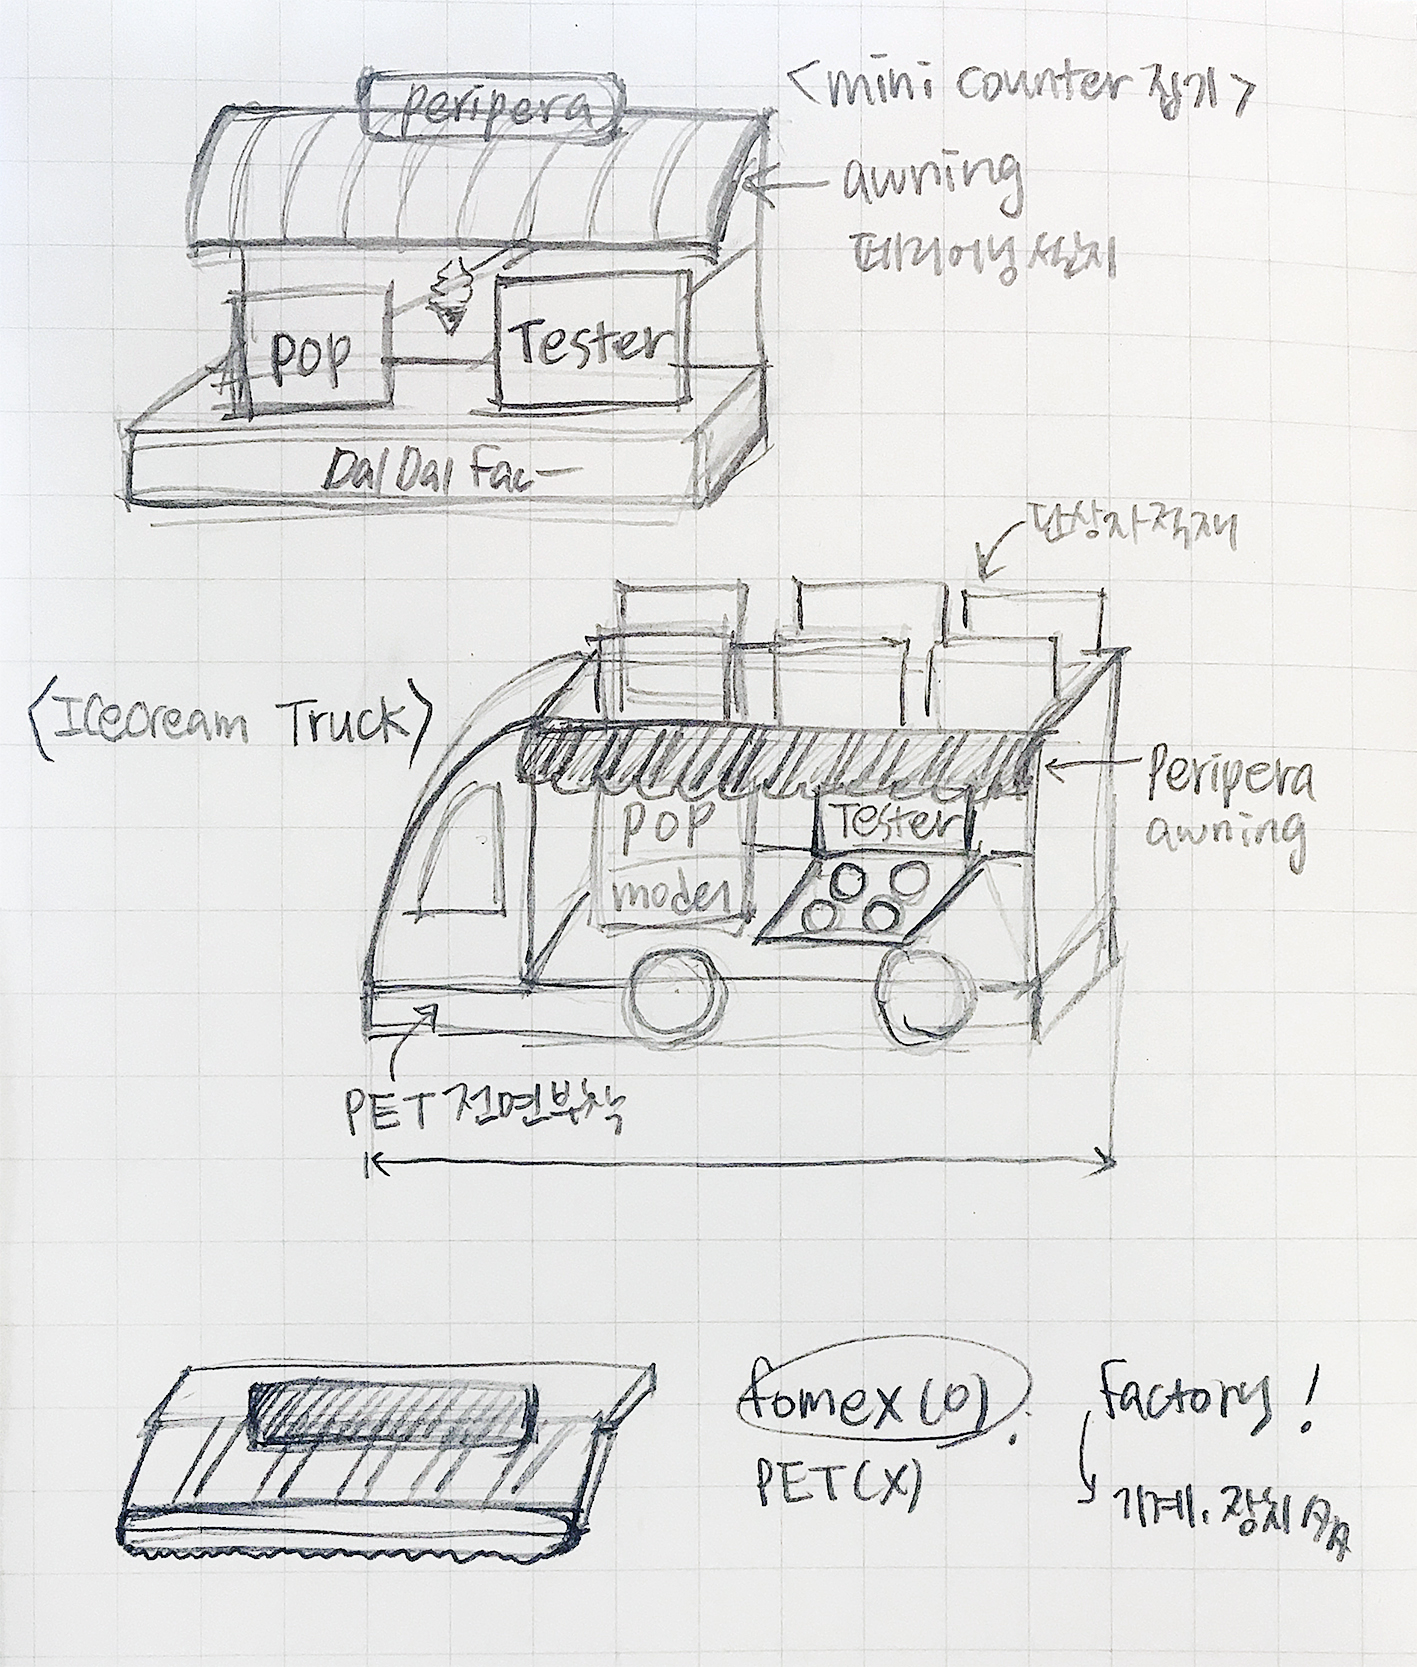 peripera
<mini counter 집기>
awning
페리어닝 설치
POP
Tester
Dal Dal Fac
단상자 적재
<Icecream Truck>
Peripera
awning
POP
model
Tester
PET 전면부착
fomex (O)
PET (X)
Factory!
기계. 장치